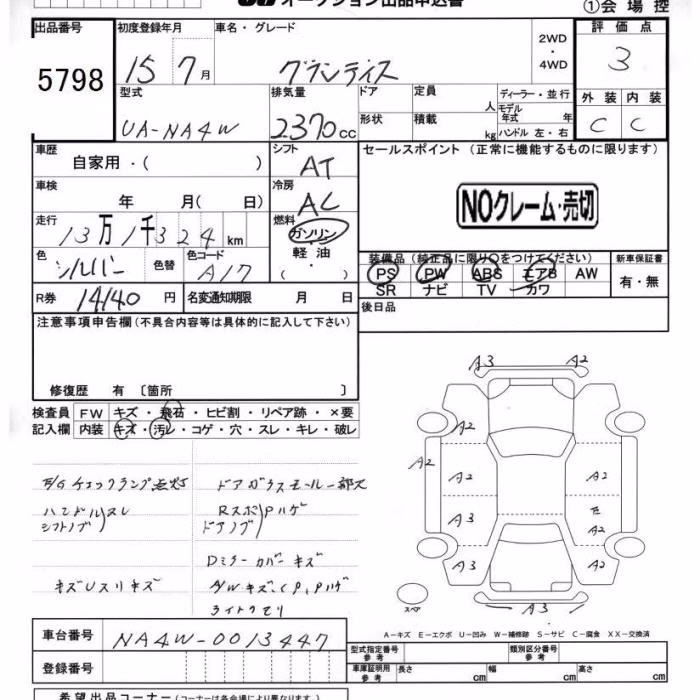 オークション出品申込書
①会場控
出品番号 初度登録年月 車名・グレード 2WD 評価点
5798 15 7月 グランディス ・4WD 3
型式 排気量 ドア 定員 人 ディーラー・並行 外装 内装
UA-NA4W 2370cc 形状 積載 kg モデル年式 年 C C
ハンドル 左・右
車歴 シフト セールスポイント (正常に機能するものに限ります)
自家用・( ) AT
車検 冷房
年 月( 日) AC NOクレーム・売切
走行 燃料
13万1千324km ガソリン
軽油
( )
色 シルバー 色替 色コード A17
装備品(純正品に限り○をつけてください) 新車保証書
PS PW ABS エアB AW 有・無
SR ナビ TV カワ
R券 14140円 名変通知期限 月 日 後日品
注意事項申告欄(不具合内容等は具体的に記入して下さい)
修復歴 有 〔箇所 〕
検査員 FW キズ・飛石・ヒビ割・リペア跡・×要
記入欄 内装 キズ・汚レ・コゲ・穴・スレ・キレ・破レ
E/Gチェックランプ点灯 ドアガラスモール一部欠
ハンドルスレ RスポPハゲ
シフトノブ ドアノブ
Dミラーカバーキズ
キズUスリキズ A/Wキズ,CP,Pハゲ
ライトクモリ
A3 A2
A2
A2 A2 A2
A3 A2
A3 A2
スペア A3
A-キズ E-エクボ U-凹み W-補修跡 S-サビ C-腐食 XX-交換済
車台番号 NA4W-0013447
型式指定番号 参考 類別区分番号 参考
登録番号
車庫証明用 参考 長さ cm 幅 cm 高さ cm
希望出品コーナー(コーナーは各会場により異なります。)